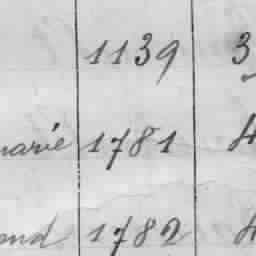 1139 3
marié 1781 4
ond 1782 4